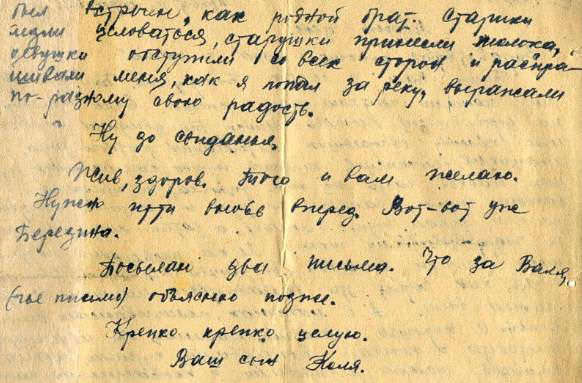 был встречен, как родной брат. Старики
лезли целоваться, старушки принесли молока,
девушки обступили со всех сторон и распра-
шивали меня, как я попал за реку, выражали
по-разному свою радость.
Ну до свиданья.
Жив, здоров. Того и вам желаю.
Нужно идти вновь вперед. Вот-вот уже
Березина.
Посылаю два письма. Что за Валя,
(чье письмо) объясню позже.
Крепко крепко целую.
Ваш сын Коля.